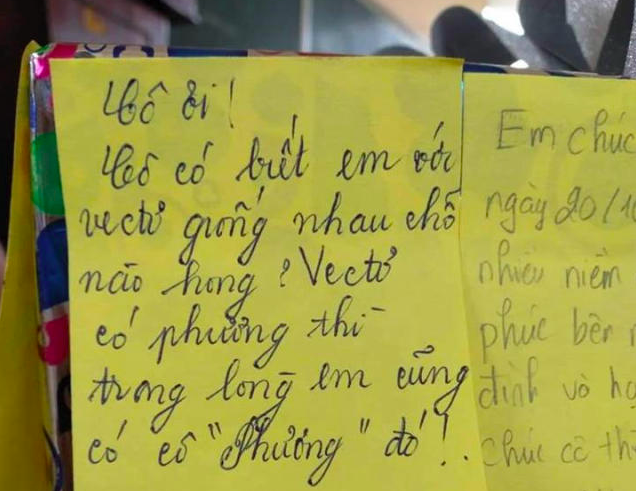 Cô ơi!
Cô có biết em với
vectơ giống nhau chỗ
nào hong? Vectơ
có phương thì
trong lòng em cũng
có cô "Phương" đó!.
Em chúc
ngày 20/1
nhiều niềm
phúc bên
đình và
chúc cô